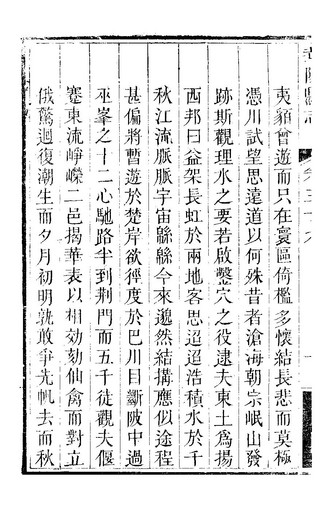 夷顙曾遊而只在寰區倚檻多懷結長悲而莫極
憑川試望思遠道以何殊昔者滄海朝宗岷山發
跡斯觀理水之要若啟鑿穴之役逮夫東土爲揚
西邦曰益架長虹於兩地客思迢迢浩積水於千
秋江流脈脈宇宙緜緜今來邈然結搆應似途程
甚偏將暫遊於楚岸欲徑度於巴川目斷陂中過
巫峯之十二心馳路半到荆門而五千徒觀夫偃
蹇東流崢嶸二邑揭華表以相効刻仙禽而對立
俄驚迴復潮生而夕月初明孰敢爭先帆去而秋